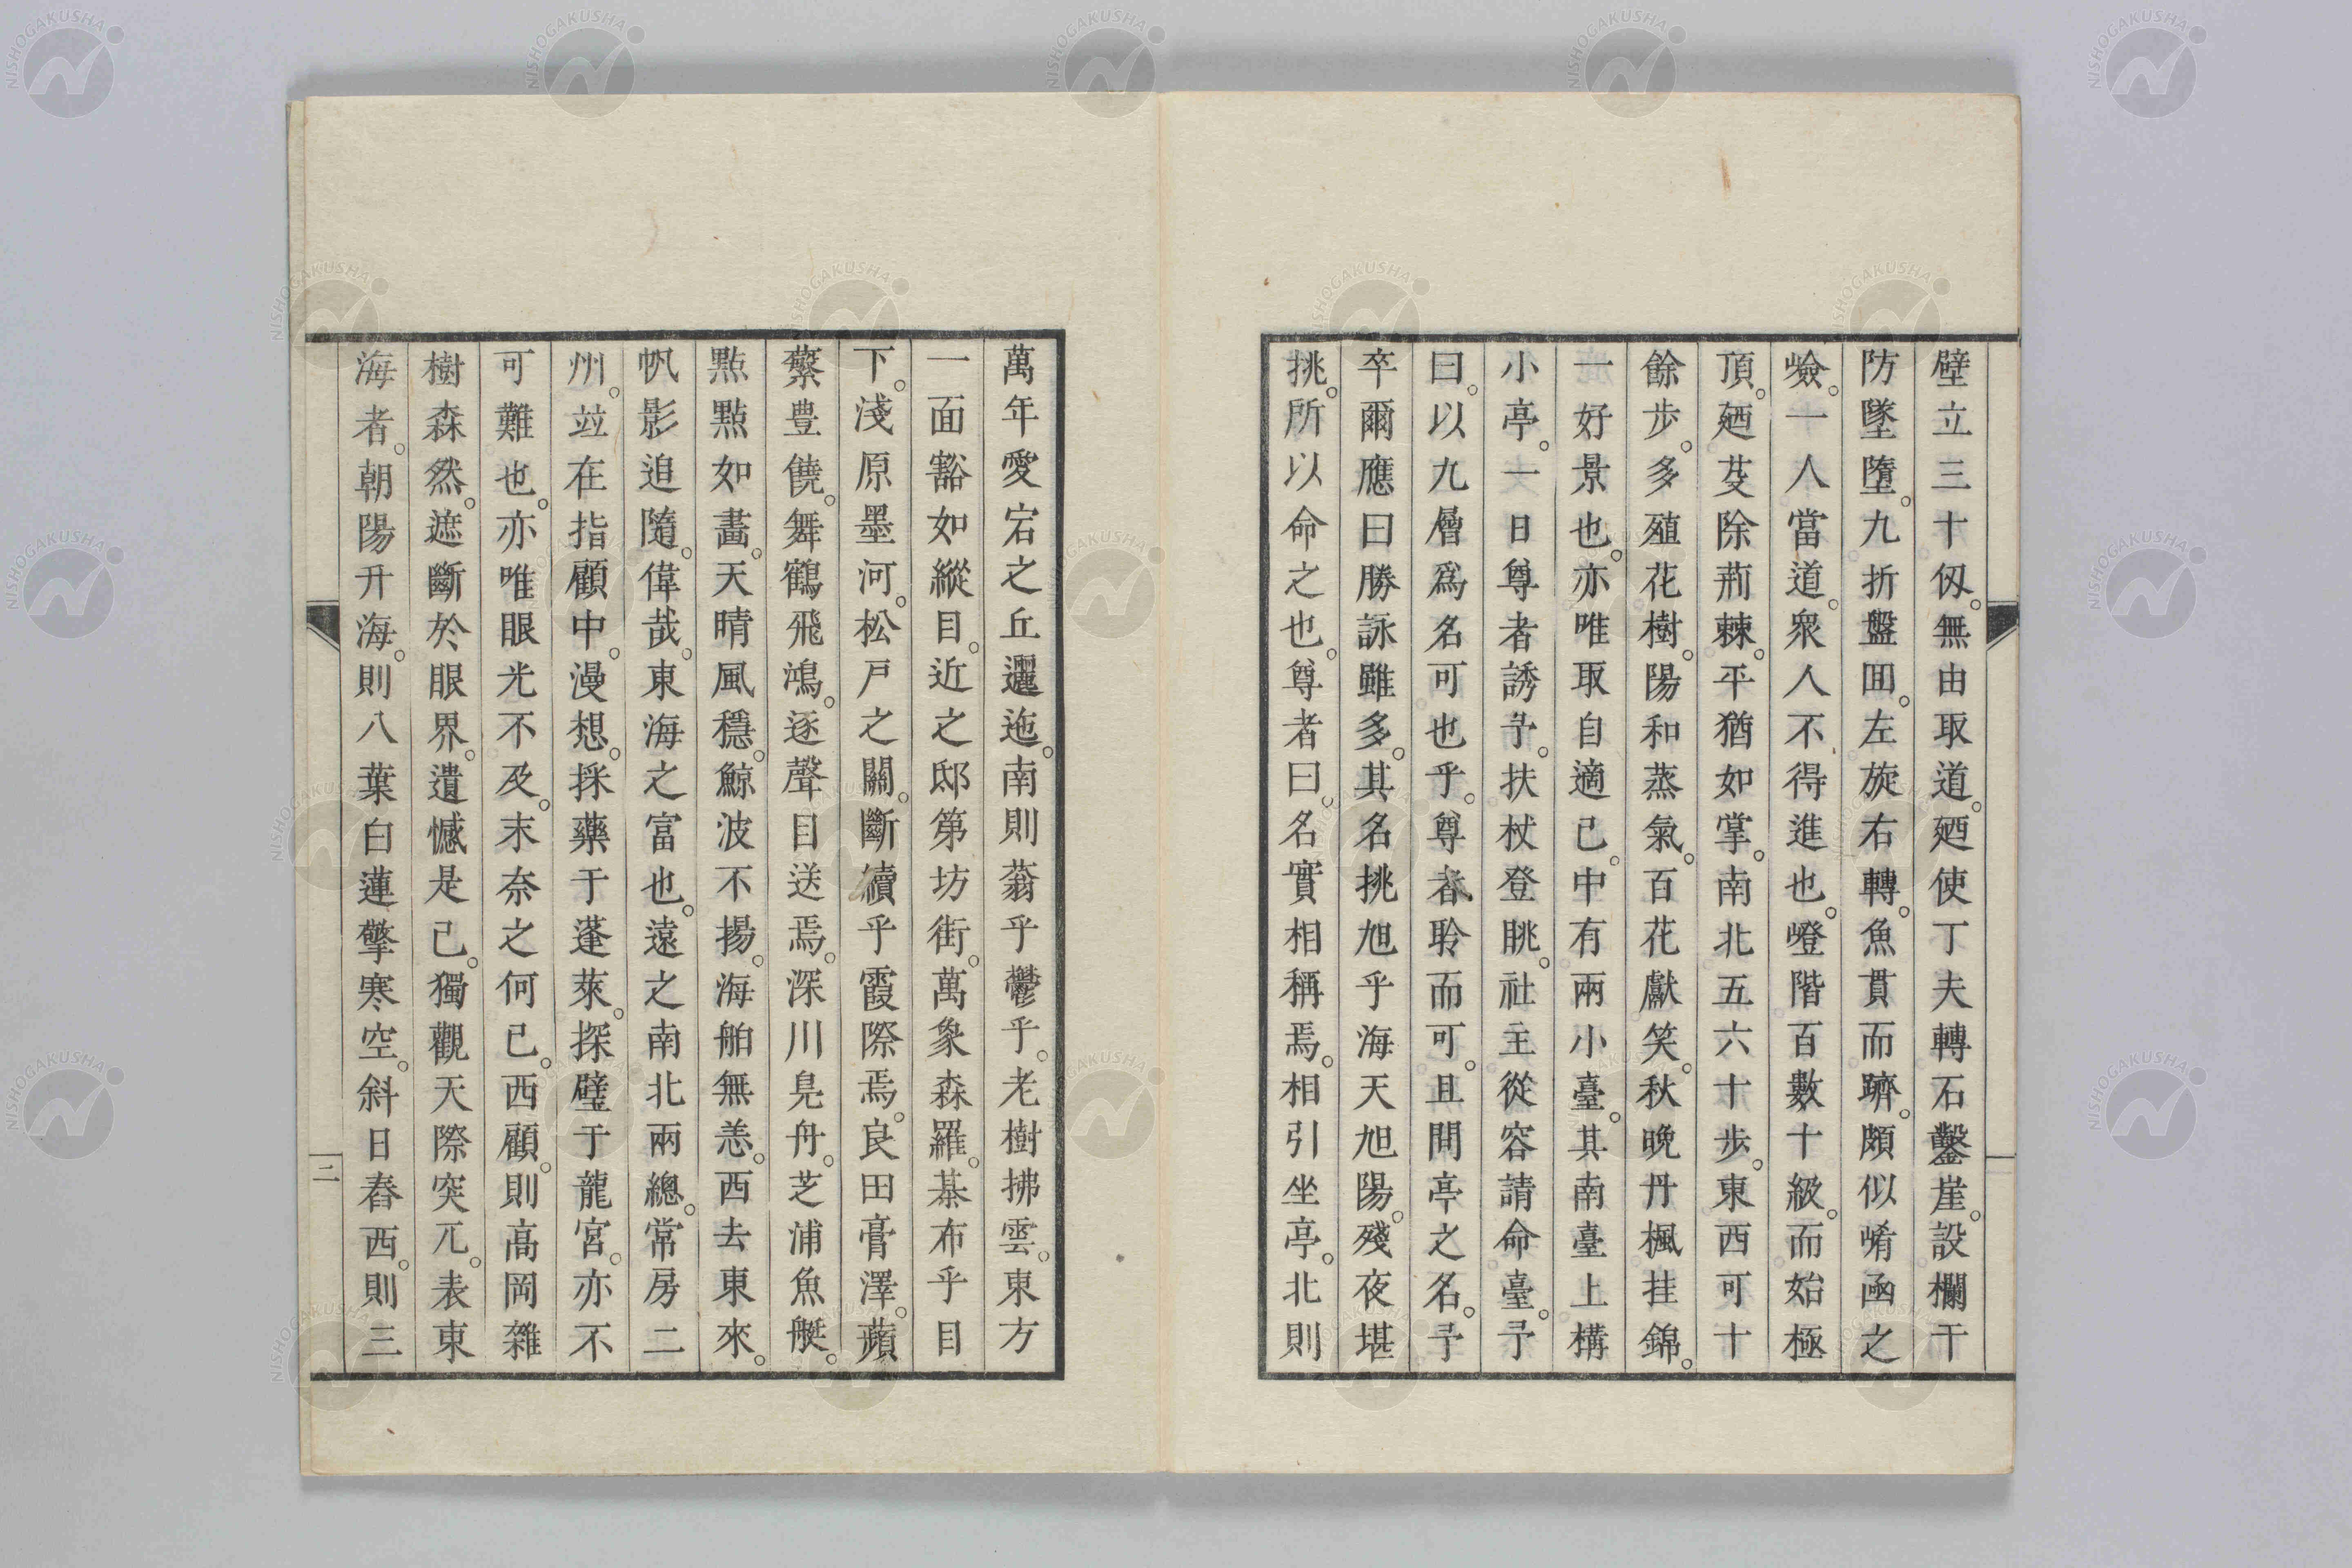 壁立三十仭。無由取道。廼使丁夫轉石鑿崖。設欄干
防墜墮。九折盤囬。左旋右轉。魚貫而躋。頗似崤凾之
嶮。一人當道。衆人不得進也。嶝階百數十級。而始極
頂。廼芟除荊棘。平猶如掌。南北五六十步。東西可十
餘步。多殖花樹。陽和蒸氣。百花獻笑。秋晚丹楓挂錦。
一好景也。亦唯取自適已。中有兩小臺。其南臺上構
小亭。一日尊者誘予。扶杖登眺。社主從容請命臺。予
曰。以九層爲名可也乎。尊者聆而可。且問亭之名。予
卒爾應曰勝詠雖多。其名挑旭乎海天旭陽。殘夜堪
挑。所以命之也。尊者曰。名實相稱焉。相引坐亭。北則
萬年愛宕之丘邐迤。南則蓊乎鬱乎。老樹拂雲。東方
一面豁如縱目。近之邸第坊街。萬象森羅。棊布乎目
下。淺原墨河。松戸之關。斷續乎霞際焉。良田膏澤。蘋
蘩豊饒。舞鶴飛鴻。逐聲目送焉。深川鳧舟。芝浦魚艇。
點點如畵。天晴風穩。鯨波不揚。海舶無恙。西去東來。
帆影追隨。偉哉。東海之富也。遠之南北兩總。常房二
州。竝在指顧中。漫想。採藥于蓬萊。探璧于龍宮。亦不
可難也。亦唯眼光不及。末奈之何已。西顧。則高岡雜
樹森然。遮斷於眼界。遺憾是已。獨觀天際突兀。表東
海者。朝陽升海。則八葉白蓮擎寒空。斜日舂西。則三
二
NISHOGAKUSHA